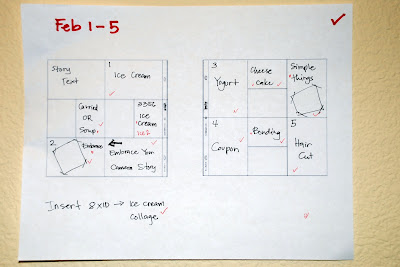 Feb 1-5
Story
Text
1
Ice Cream
OR
Soup
Ice
Cream
2
Embrace
Embrace You
Camera Story
3
Yogurt
Cheese
cake
Simple
Things
4
Coupon
Bending
5
Hair
Cut
Insert 8x10 → Ice cream
Collage